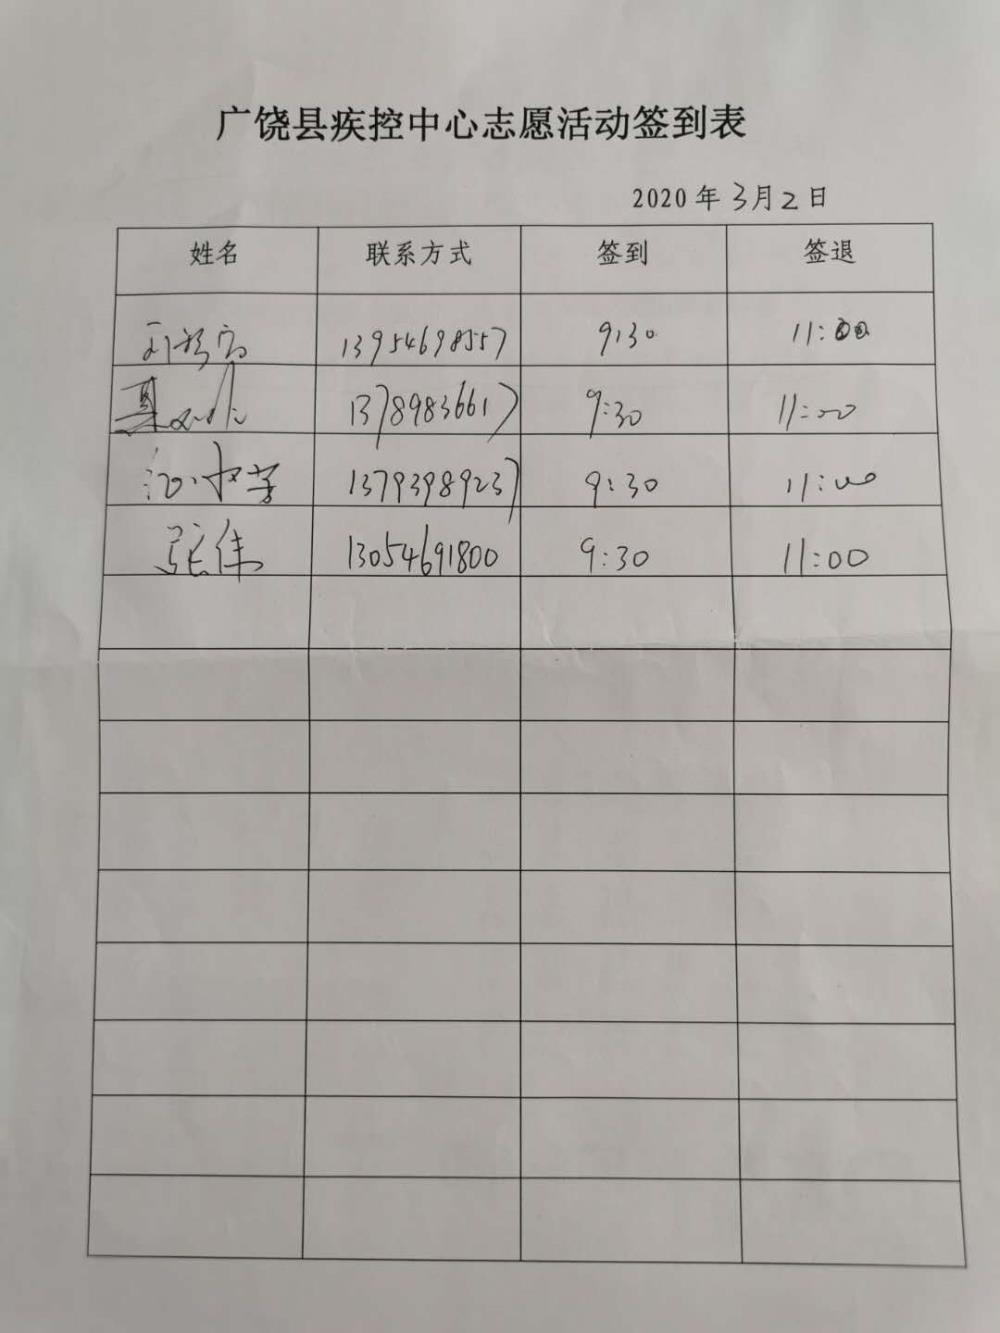 广饶县疾控中心志愿活动签到表
2020年3月2日
姓名 联系方式 签到 签退
13954698557 9:30 11:00
13789836617 9:30 11:00
13793989237 9:30 11:00
张伟 13054691800 9:30 11:00